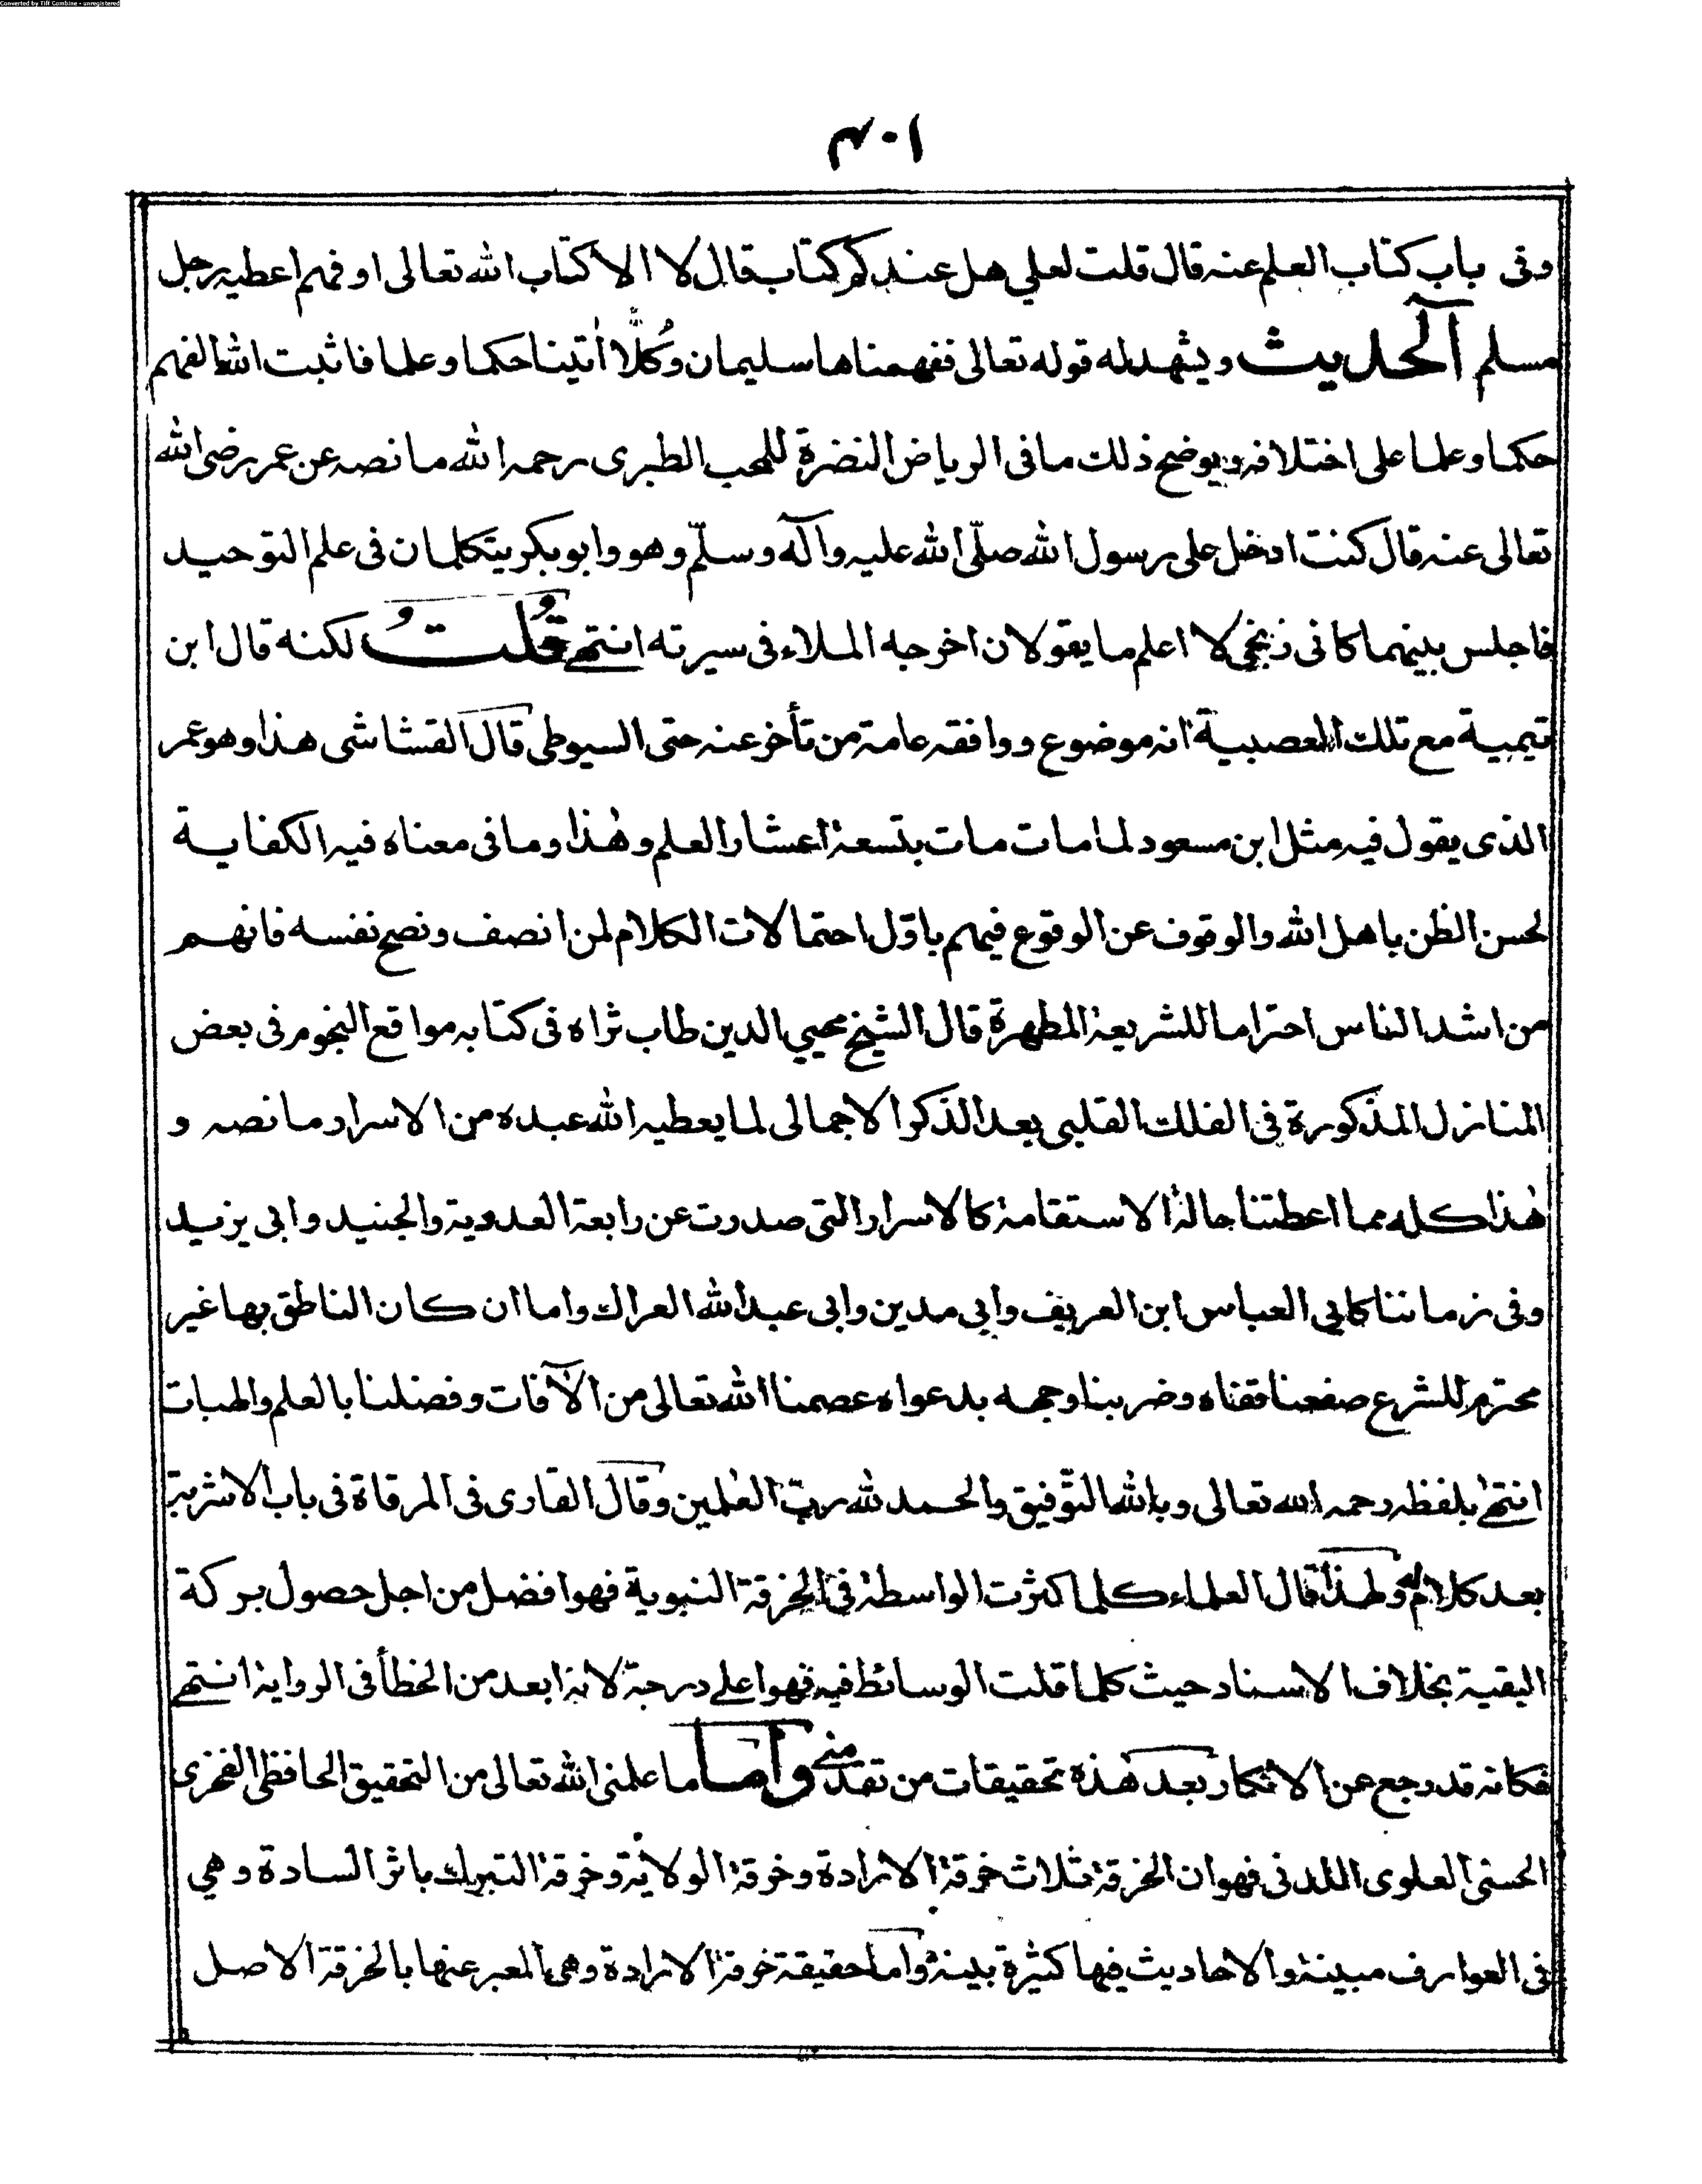 Converted by Tiff Combine - unregistered
١٠٣
وفى باب كتاب العلم عنه قال قلت لعلي هل عندكم كتاب قال لا الا كتاب الله تعالى او فهم اعطيه رجل
مسلم الحديث ويشهد له قوله تعالى ففهمناها سليمان وكُلًّا اٰتينا حكما وعلما فاثبت الله الفهم
حكما وعلما على اختلافه ويوضح ذلك ما فى الرياض النضرة للمحب الطبرى رحمه الله ما نصه عن عمر رضى الله
تعالى عنه قال كنت ادخل على رسول الله صلّى الله عليه وآله وسلّم وهو وابو بكر يتكلمان فى علم التوحيد
فاجلس بينهما كانى زنجي لا اعلم ما يقولان اخرجه الملاء فى سيرته انتهى قُلتُ لكنه قال ابن
تيمية مع تلك العصبية انه موضوع ووافقه عامة من تأخر عنه حتى السيوطى قال القشاشى هذا وهو عمر
الذى يقول فيه مثل ابن مسعود لما مات مات بتسعة اعشار العلم وهٰذا وما فى معناه فيه الكفاية
لحسن الظن باهل الله والوقوف عن الوقوع فيهم باوّل احتمالات الكلام لمن انصف ونصح نفسه فانهم
من اشد الناس احتراما للشريعة المطهرة قال الشيخ محيي الدين طاب ثراه فى كتابه مواقع النجوم فى بعض
المنازل المذكورة فى الفلك القلبى بعد الذكر الاجمالى لما يعطيه الله عبده من الاسرار ما نصه و
هٰذا كله مما اعطتنا حالة الاستقامة كالاسرار التى صدرت عن رابعة العدوية والجنيد وابى يزيد
وفى زماننا كابي العباس ابن العريف وابي مدين وابى عبد الله العراك واما ان كان الناطق بها غير
محترم للشرع صفعنا قفاه وضربنا وجهه بدعواه عصمنا الله تعالى من الآفات وفضلنا بالعلم والهبات
انتهى بلفظه رحمه الله تعالى وبالله التّوفيق والحمد لله ربّ العٰلمين وقال القارى فى المرقاة فى باب الاشربة
بعد كلام له ولهذا قال العلماء كلما كثرت الواسطة فى الخرقة النبوية فهو افضل من اجل حصول بركة
البقية بخلاف الاسناد حيث كلما قلت الوسائط فيه فهو اعلى درجة لانه ابعد من الخطأ فى الرواية انتهى
فكانه قد رجع عن الانكار بعد هٰذه تحقيقات من تقدمنى واما ما علمنى الله تعالى من التحقيق الحافظى الفخرى
الحسنى العلوى اللدنى فهو ان الخرقة ثلاث خرقة الارادة وخرقة الولاية وخرقة التبرك باثر السادة وهي
فى العوارف مبينة والاحاديث فيها كثيرة بينة واما حقيقة خرقة الارادة وهى المعبر عنها بالخرقة الاصل